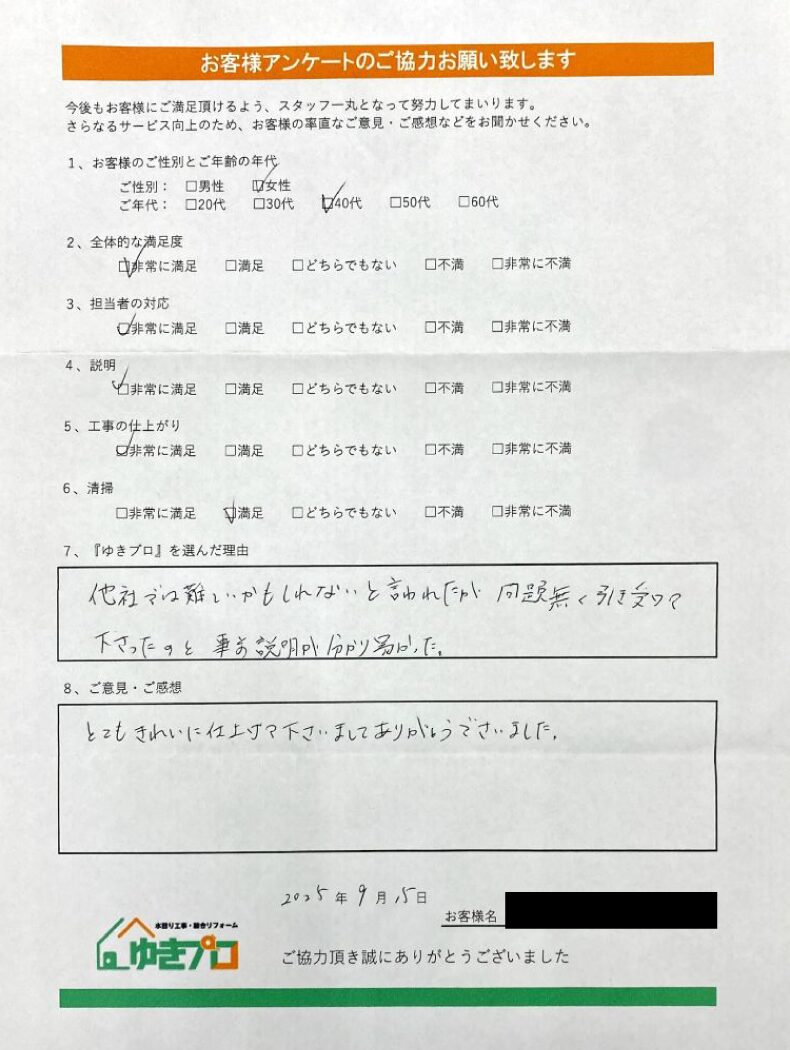 お客様アンケートのご協力お願い致します
今後もお客様にご満足頂けるよう、スタッフ一丸となって努力してまいります。
さらなるサービス向上のため、お客様の率直なご意見・ご感想などをお聞かせください。
1、お客様のご性別とご年齢の年代
ご性別： □男性 ☑女性
ご年代： □20代 □30代 ☑40代 □50代 □60代
2、全体的な満足度
☑非常に満足 □満足 □どちらでもない □不満 □非常に不満
3、担当者の対応
☑非常に満足 □満足 □どちらでもない □不満 □非常に不満
4、説明
☑非常に満足 □満足 □どちらでもない □不満 □非常に不満
5、工事の仕上がり
☑非常に満足 □満足 □どちらでもない □不満 □非常に不満
6、清掃
□非常に満足 ☑満足 □どちらでもない □不満 □非常に不満
7、『ゆきプロ』を選んだ理由
他社では難しいかもしれないと言われたが 問題無く引き受けて
下さったのと 事前説明が分かり易かった。
8、ご意見・ご感想
とてもきれいに仕上げて下さいましてありがとうございました。
2025年9月15日
お客様名
水廻り工事・総合リフォーム
ゆきプロ
ご協力頂き誠にありがとうございました